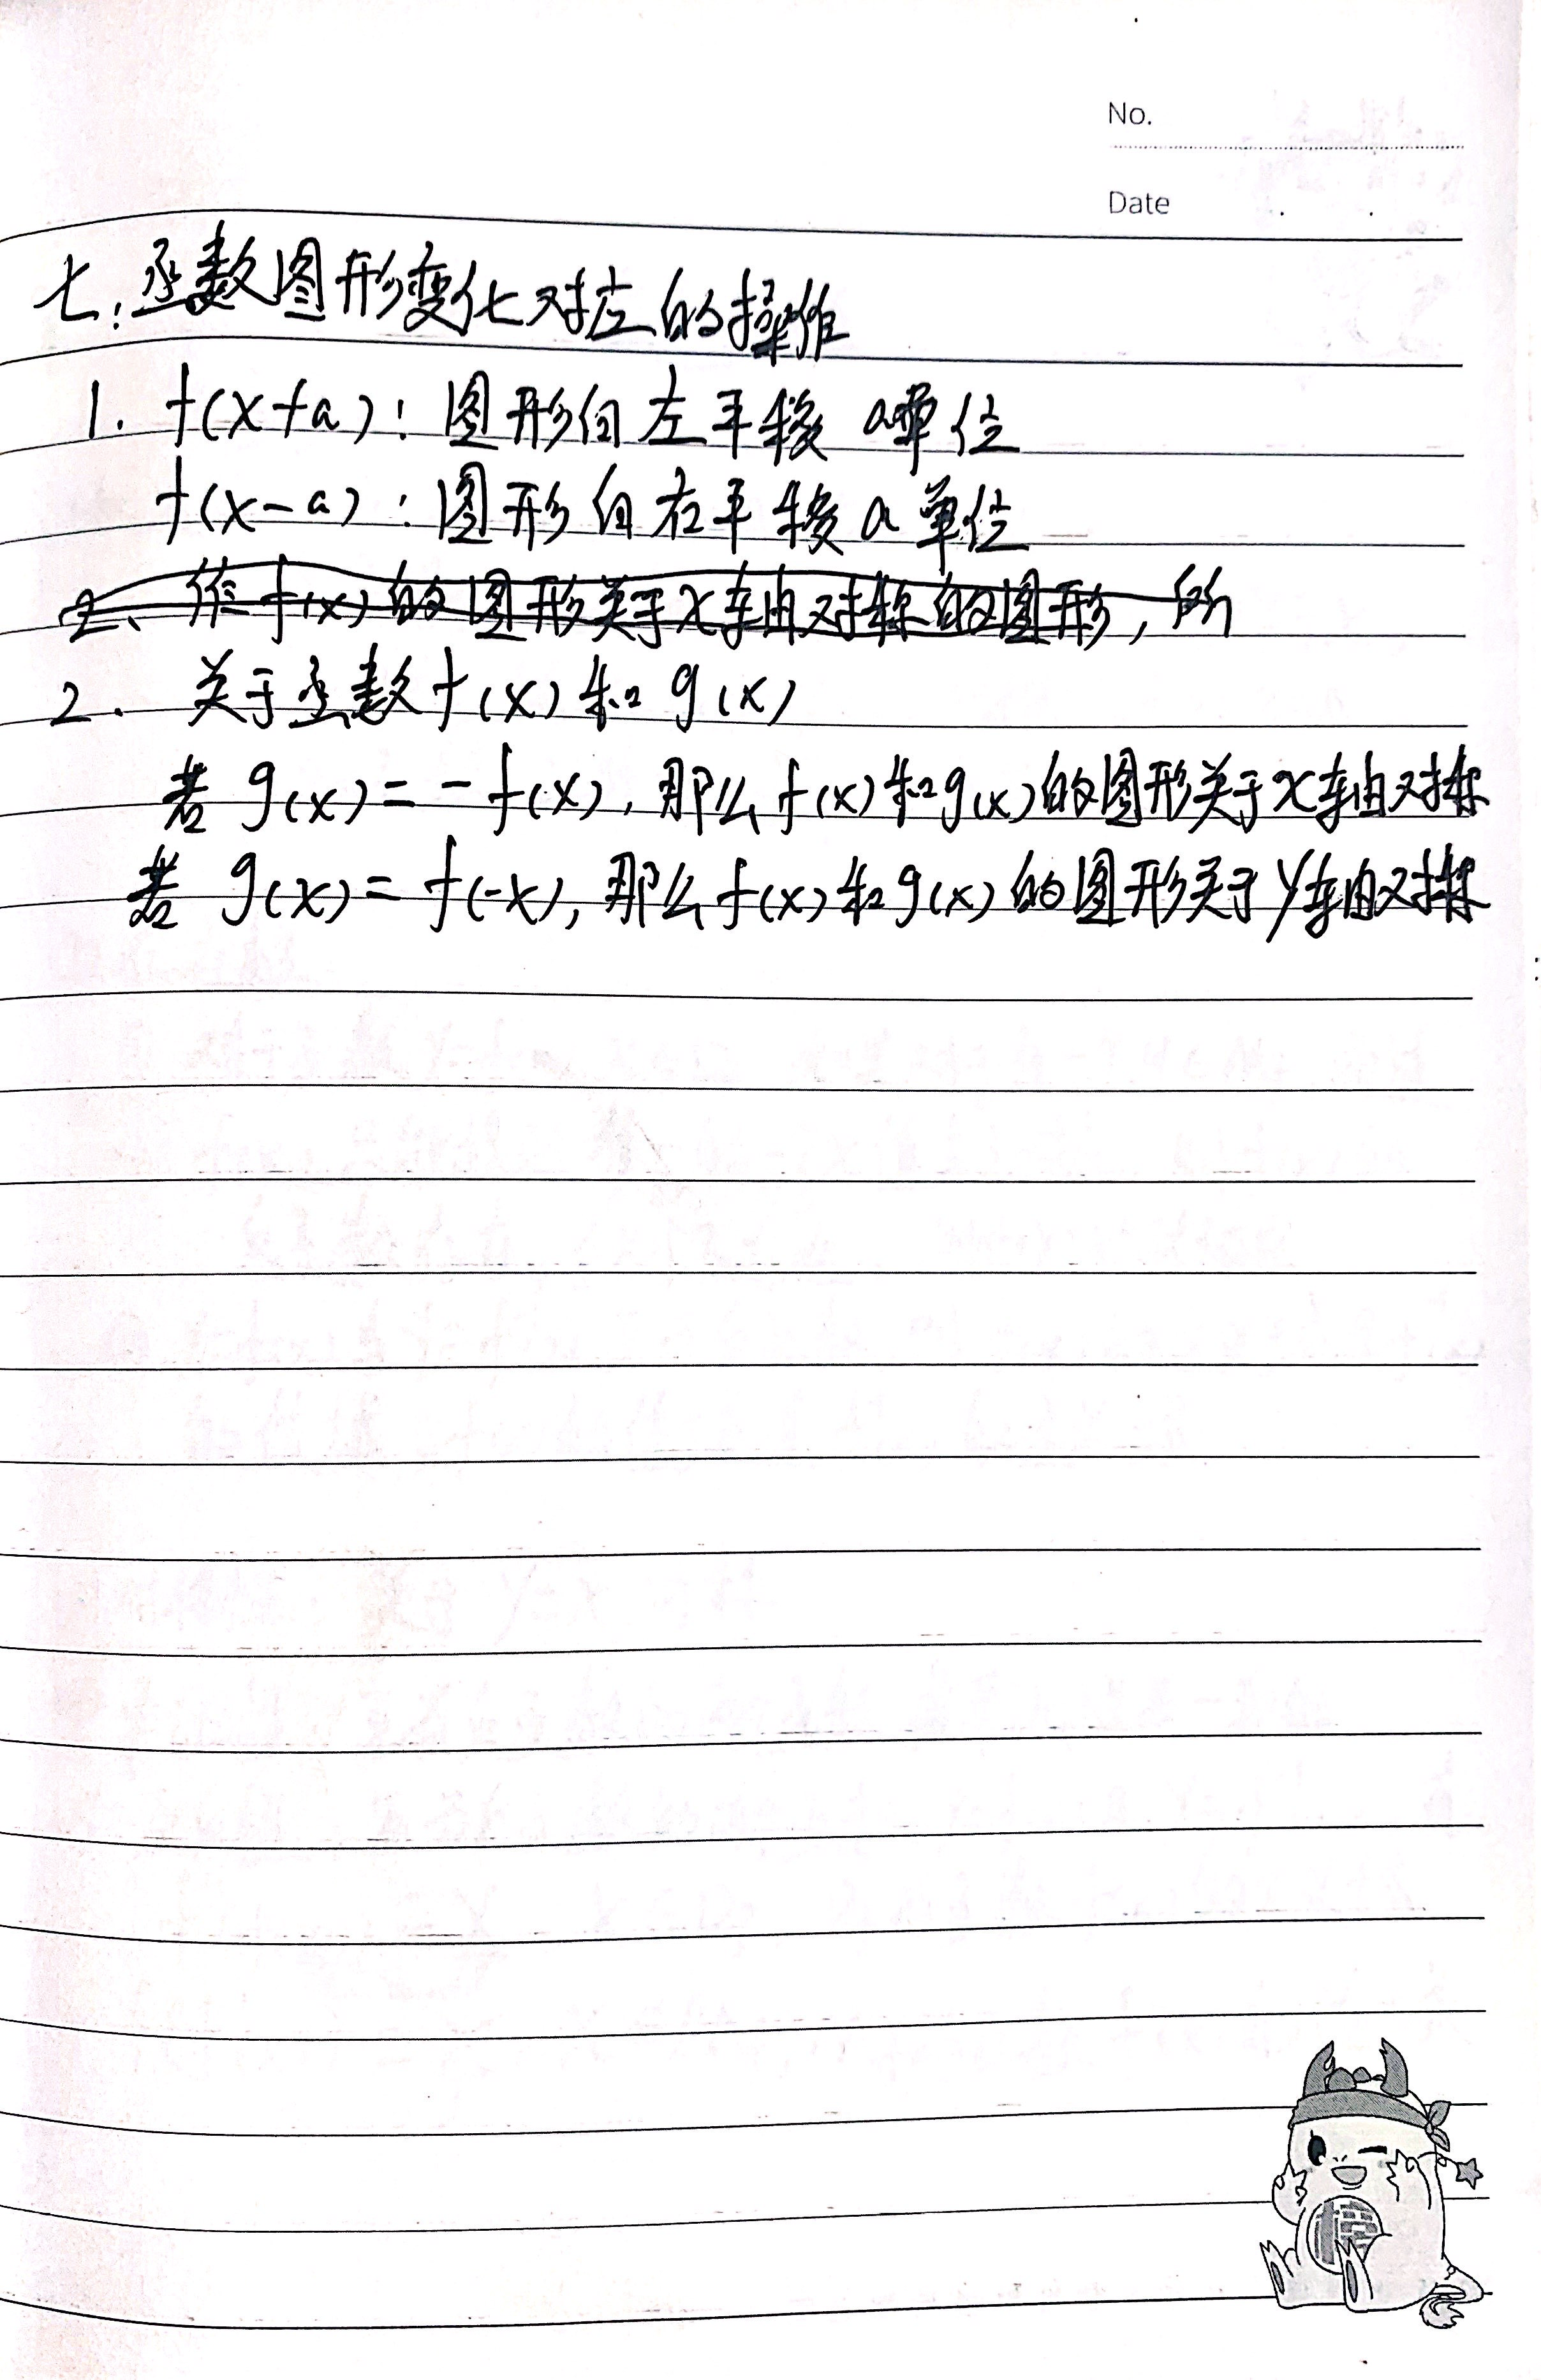 No.
Date
七. 函数图形变化对应的操作
1. f(x+a): 图形向左平移 a单位
f(x-a): 图形向右平移 a 单位
2、作 f(x) 的图形关于x轴对称的图形, 所
2. 关于函数 f(x) 和 g(x)
若 g(x) = - f(x), 那么 f(x) 和 g(x) 的图形关于x轴对称
若 g(x) = f(-x), 那么 f(x) 和 g(x) 的图形关于y轴对称